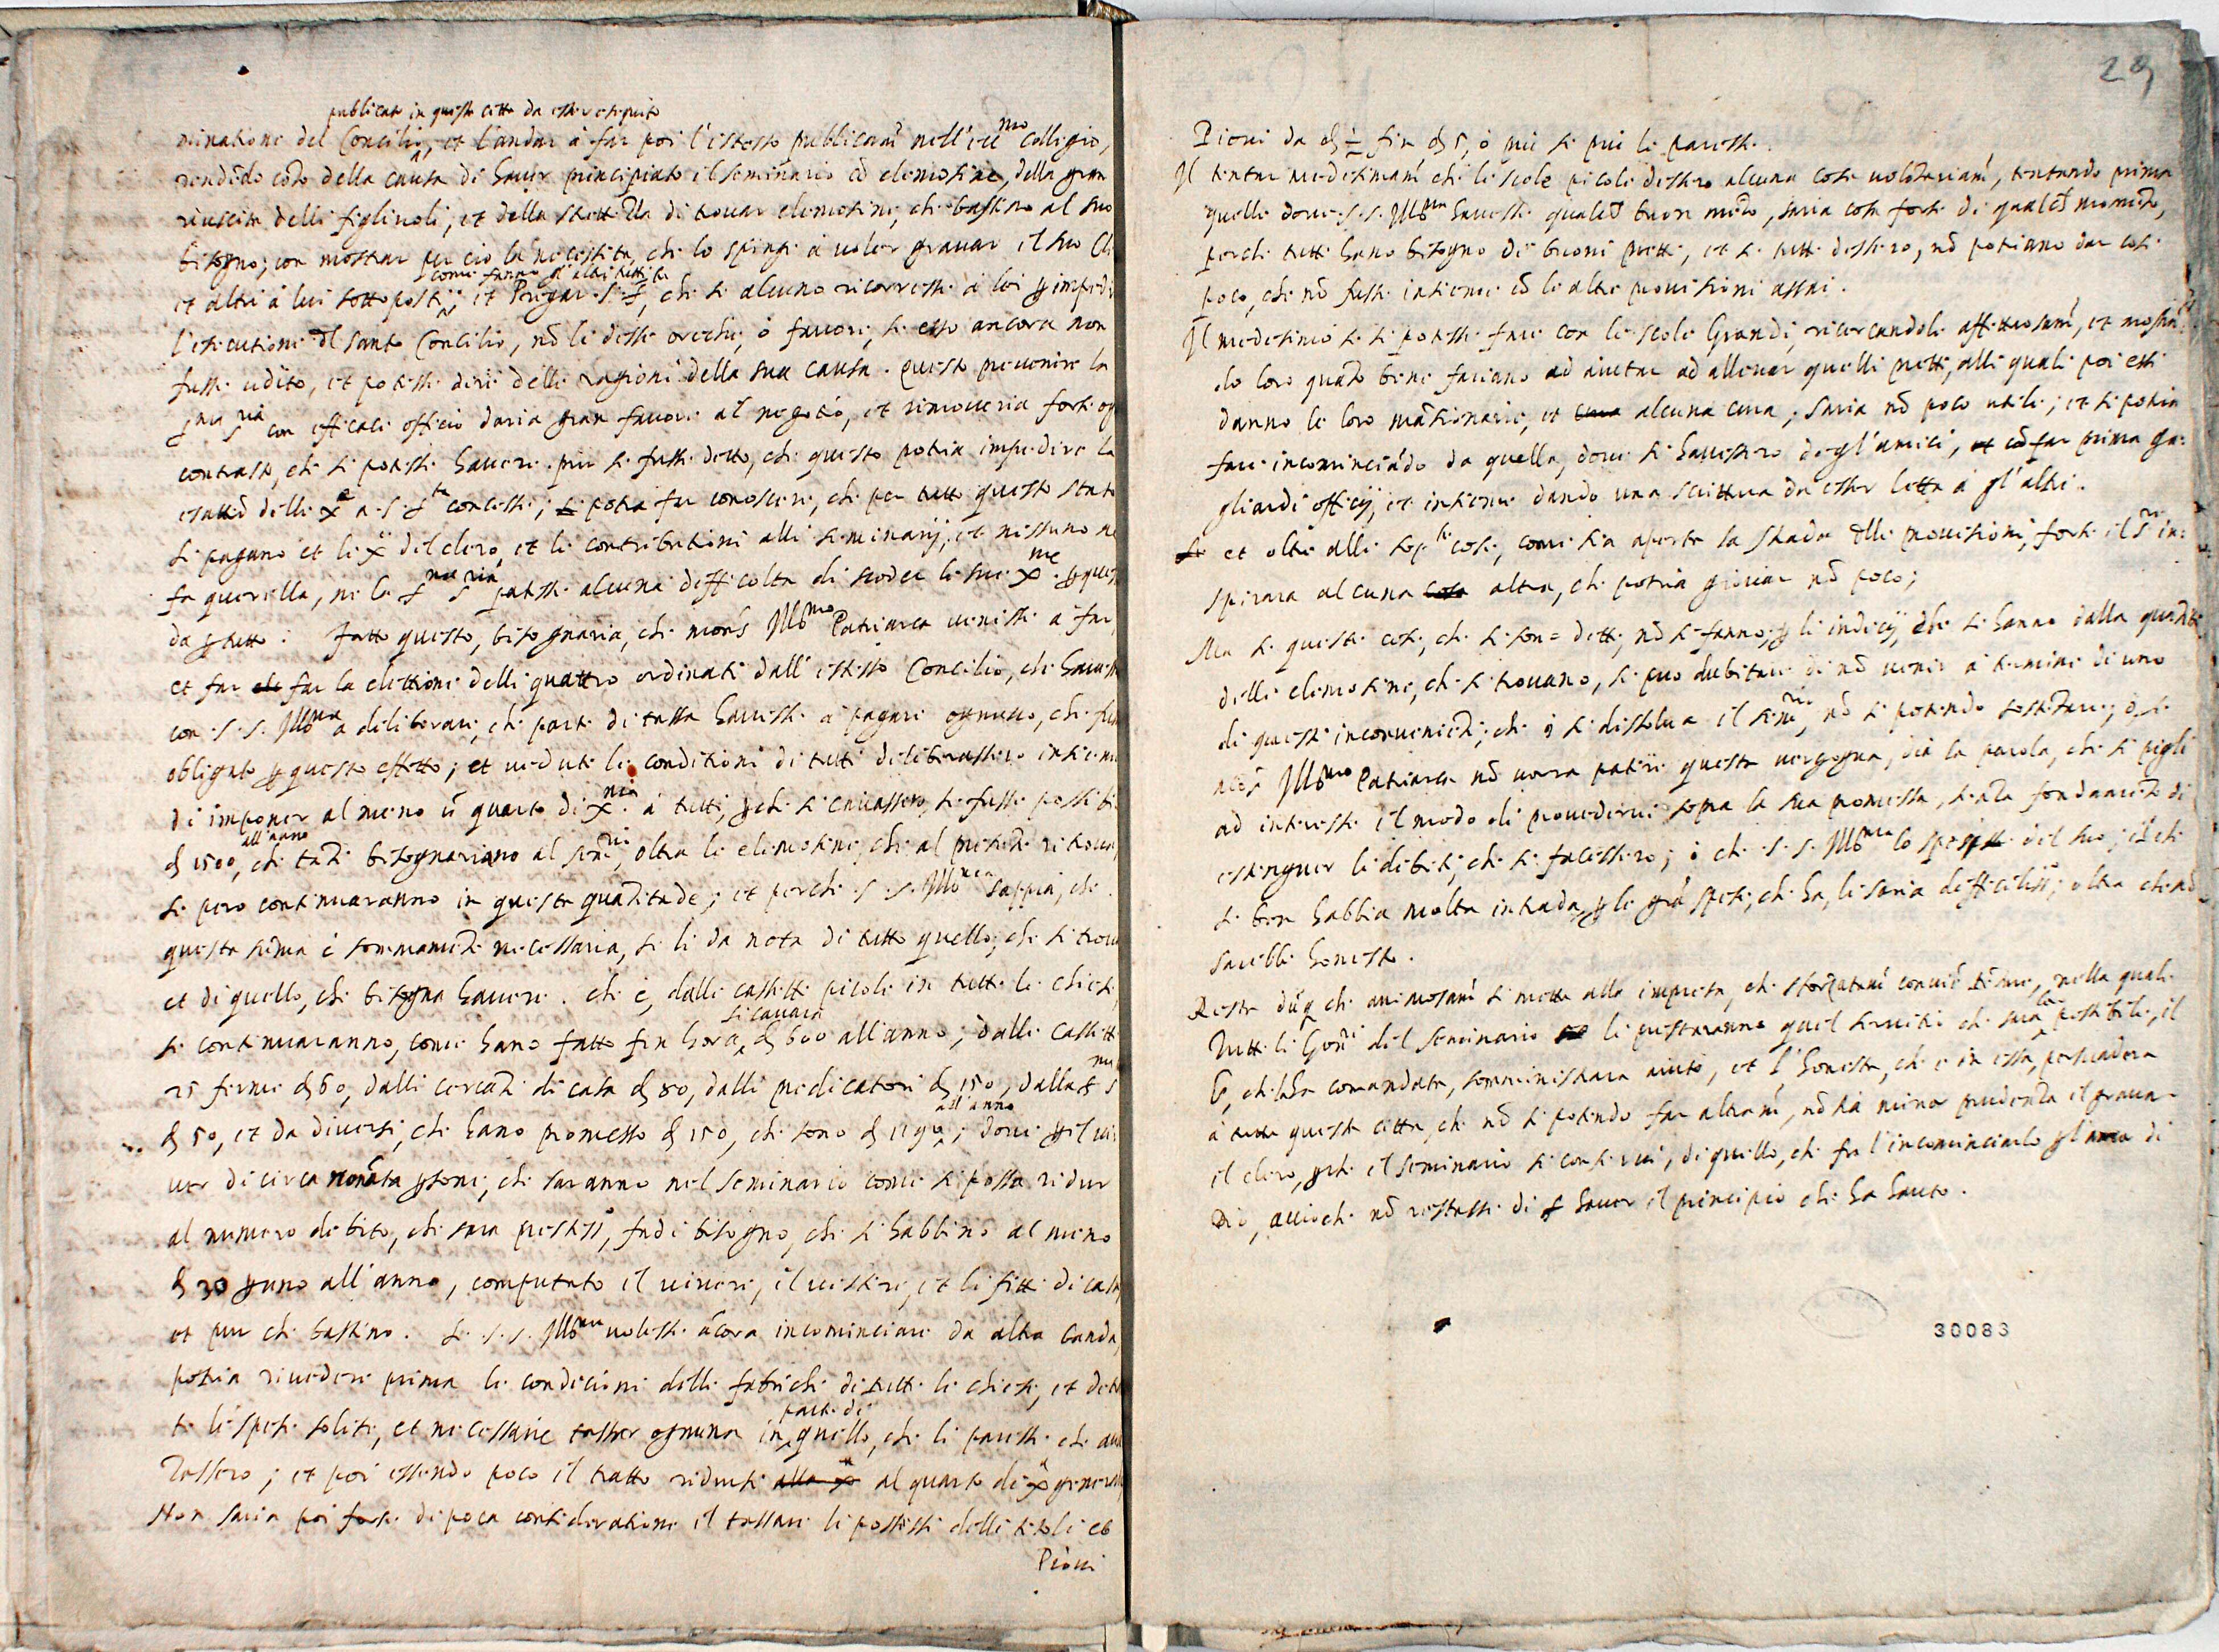 publicato in questa citta da esser eseguito
minatione del Concilio, et l'andar à far poi l'istesso publicarà nell'ecc.mo Collegio,
rendẽdo cõto della causa di hauer principiato il seminario cõ elemosine, della gran
riuscita delli figliuoli, et della di trouar elemosine, che bastino al suo
bisogno; con mostrar per ciò la necessita, che lo spinge à uoler grauar il suo Cle
come fanno gl'altri tutti
et altri à lui sottoposti; et Pregar S. S., che se alcuno ricorresse à lei p impedir
l'esecutione del santo Concilio, nõ li desse orechie, ò fauore, se esso ancora non
fusse udito, et potesse dire delle ragioni della sua causa. questo preuenire la
con efficace officio daria gran fauore al negotio, et rimoueria forse og
contrasto, che si potesse hauere. pur se fusse detto, che questo potria impedire la
delle x.e a S. S.ta concesse; si potra far conoscere, che per tutto questo stato
si pagano et le x.e del clero, et le contributioni alli seminarij, et nissuno ne
fa querella, ne la patisse alcuna difficolta di scoder le sue x.me. p ques
da p tutto. fatto questo, bisognaria, che mons.r Ill.mo Patriarca uenisse à far,
et far ele far la elettione delli quattro ordinati dall'istesso Concilio, che hauess
con S. S. Ill.ma à deliberare, che parte di tassa hauesse à pagare ognuno, che fuss
obligato p questo effetto; et uedute le conditioni di tutti deliberassero insieme
di imponer al meno ũ quarto di x.ma à tutti, pche si cauassero, se fusse possibi
all'anno
d. 1500, che tãti bisognariano al semĩ.rio, oltra le elemosine, che al presẽte si troua
se pero continuaranno in questa quãtitade; et perche S. S. Ill.ma sappia, che
questa sũma è sommamẽte necessaria, se li da nota di tutto quello, che si troua
et di quello, che bisogna hauere. che è, dalle cassette picole in tutte le chiese,
si cauara
se continuaranno, come hano fatto fin hora, d. 600 all'anno; dalle cassette
25 ferme d. 60, dalli cercãti di casa d. 80, dalli predicatori d. 150, dalla S. S.
all'anno
d. 50, et da diuersi, che hano promesso d. 150, che sono d. 1190; doue p il ui
uer di circa nonãta psone, che saranno nel seminario come si possa ridur
al numero debito, che sara prestiss.o, fa di bisogno, che si habbino al meno
d. 30 p uno all'anno, computato il uiuere, il uestire, et li fitti di casa,
et pur che bastino. Se S. S. Ill.ma uolesse ãcora incominciare da altra banda,
potria riuedere prima le condicioni delle fabriche di tutte le chiese, et det
parte di
te le spese solite, et necessarie tassar ognuna in quello, che li paresse che aua
zassero; et poi essendo poco il tratto ridursi alla x.a al quarto di x.a generale
Non saria poi forse di poca consideratione il tassare li possessi delli titoli et
Pioui
29
Pioui da d. ½ fin d. 5, ò piu se piu le paresse.
Il tentar medesimamẽ che le scole picole dessero alcuna cosa uolõtariamẽ, tentando prima
quelle doue S. S. Ill.ma hauesse qualche buon mezo, saria cosa forse di qualche momẽto,
perche tutti hano bisogno di buoni preti, et se tutte dessero, nõ potriano dar cosi
poco, che nõ fusse insieme cõ le altre prouisioni assai.
Il medesimo se si potesse fare con le scole Grandi, ricercandole affettuosamẽ, et mostrã
do loro quãto bene fariano ad aiutar ad alleuar quelli preti, alli quali poi esse
danno le loro mãsionarie, et cura alcuna cura, saria nõ poco utile; et si potria
fare incominciãdo da quella, doue si hauessero degl'amici, et cõ far prima ga=
gliardi officij, et insieme dando una scrittura da esser letta à gl'altri.
Se et oltre alle cose, come sia aperta la strada alle prouisioni, forse il S.r in=
spirara alcuna cosa altra, che potria giouar nõ poco;
Ma se queste cose, che si son= dette, nõ si fanno, p li indicij, che si hanno dalla quãtità
delle elemosine, che si trouano, si puo dubitare di nõ uenir à termine di uno
di questi incõuenienti; che ò si dissolua il sem.rio, nõ si potendo sostẽtare; ò se
mõs.r Ill.mo Patriarca nõ uorra patire questa uergogna, dia la parola, che si pigli
ad interesse il modo di prouederui sopra la sua promessa, senza fondamẽto di
estinguer li debiti, che si facessero; ò che S. S. Ill.ma lo spesasse del suo; il che
se ben habbia molta intrada, p le grã spese, che ha, le saria difficiliss.o; oltra che nõ
sarebbe honesto.
Resta dũq che animosamẽ si metta alla impresa, che sforzatamẽ conuiẽ farsi, nella quale
Tutti li Gou.ri del seminario se li prestaranno quel seruitio che sara lor possibile, il
S., che l'ha comandata, somministrara aiuto, et l'honesta, che è in essa, persuadera
à tutta questa citta, che nõ si potendo far altramẽ, nõ sia minor prudenza il grauar
il clero, pche il seminario si conserui, di quello, che fu l'incominciarlo p l'amor di
Dio, accioche nõ restasse di f hauer il principio che ha hauto.
30083